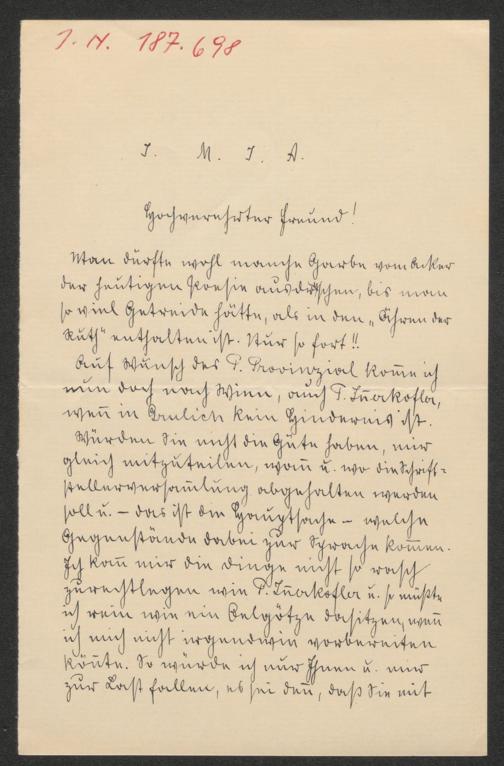 I. N. 187.698
J. M. J. A.
Hochverehrter Freund!
Man dürfte wohl manche Garbe vom Acker
der heutigen Poesie ausdreschen, bis man
so viel Getreide hätte, als in den „Ähren der
Ruth" enthalten ist. Nur so fort!!
Auf Wunsch des P. Provinzial kom̅e ich
nun doch nach Wien, auch P.
wen̅ in kein Hindernis ist.
Würden Sie nicht die Güte haben, mir
gleich mitzuteilen, wan̅ u. wo die Schrift=
stellerversam̅lung abgehalten werden
soll u. – das ist die Hauptsache – welche
Gegenstände dabei zur Sprache kom̅en.
Ich kan̅ mir die Dinge nicht so rasch
zurechtlegen wie P. u. so müßte
ich rein wie ein Oelgötze dasitzen, wen̅
ich mich nicht irgendwie vorbereiten
kön̅te. So würde ich nur Ihnen u. mir
zur Last fallen, es sei den̅, daß Sie mit